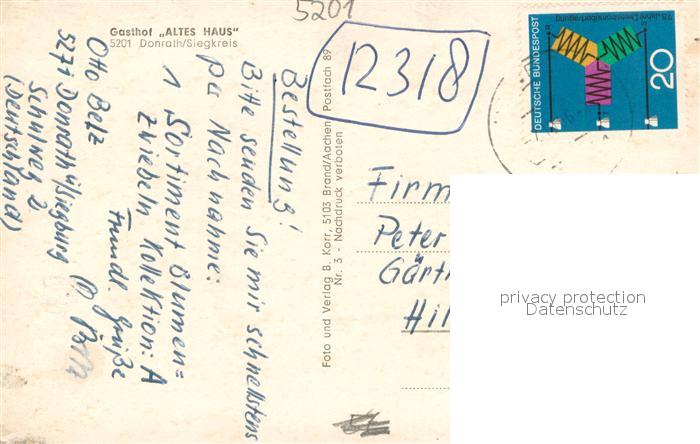 5201
Gasthof „ALTES HAUS"
5201 Donrath/Siegkreis
Otto Belz
Donrath
Schulweg 2
(Deutschland)
Bestellung!
Bitte senden Sie mir schnellstens
per Nachnahme:
1 Sortiment Blumen=
Zwiebeln Kollektion: A
Freundl. Grüße
12318
Foto und Verlag B. Korr, 5103 Brand/Aachen, Postfach 89
Nr. 3 - Nachdruck verboten
75 Jahre Drehstromübertragung
DEUTSCHE BUNDESPOST
20
Firm
Peter
Gärtn
Hil
privacy protection
Datenschutz